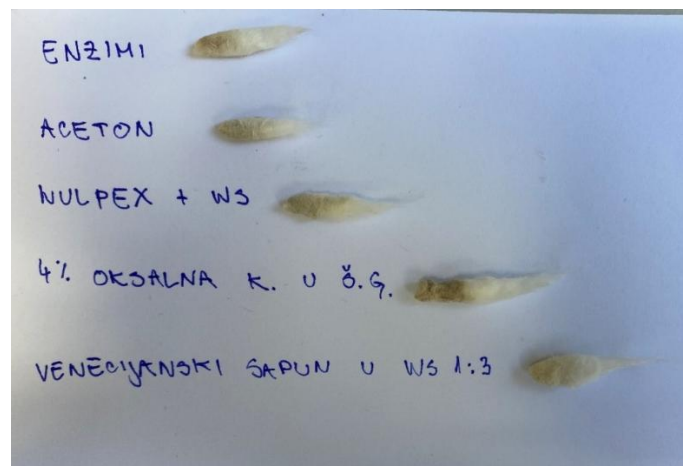 ENZIMI
ACETON
NULPEX + WS
4% OKSALNA K. U Š.G.
VENECIJANSKI SAPUN U WS 1:3